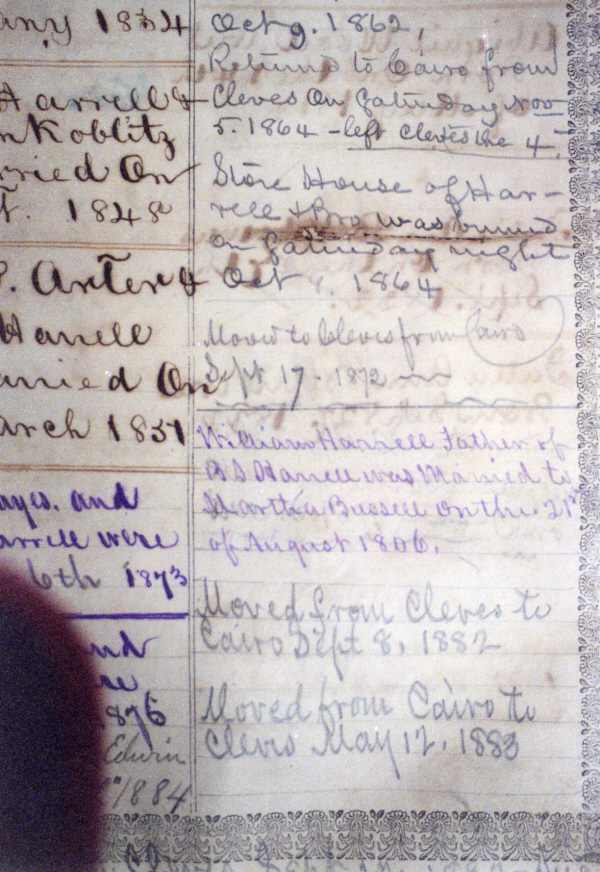 any 1834
Harrell &
n Koblitz
ried On
t. 1848
P. Arter &
Harrell
arried On
arch 1851
ayes. and
arrell were
6th 1873
nd
re
1876
Edwin
1884
Oct 9. 1862,
Returned to Cairo from
Cleves On Saturday Nov
5. 1864 - left Cleves the 4.
Store House of Har-
rell & Bro was burned
on Saturday night
Oct 1864
Moved to Cleves from Cairo
Sept 17 - 1872
William Harrell Father of
B S Harrell was Married to
Martha Bussell on the 21st
of August 1806.
Moved from Cleves to
Cairo Sept 8, 1882
Moved from Cairo to
Cleves May 12, 1883